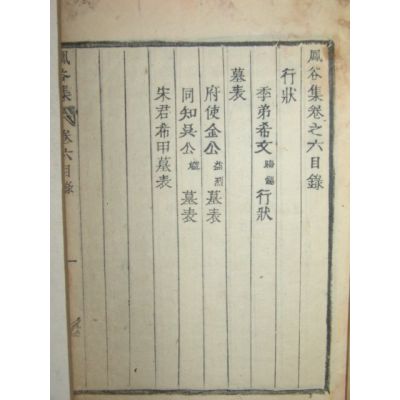 鳳谷集卷之六目錄
行狀
季弟希文行狀
墓表
府使金公墓表
同知吳公墓表
宋君希甲墓表
鳳谷集 卷六目錄 一